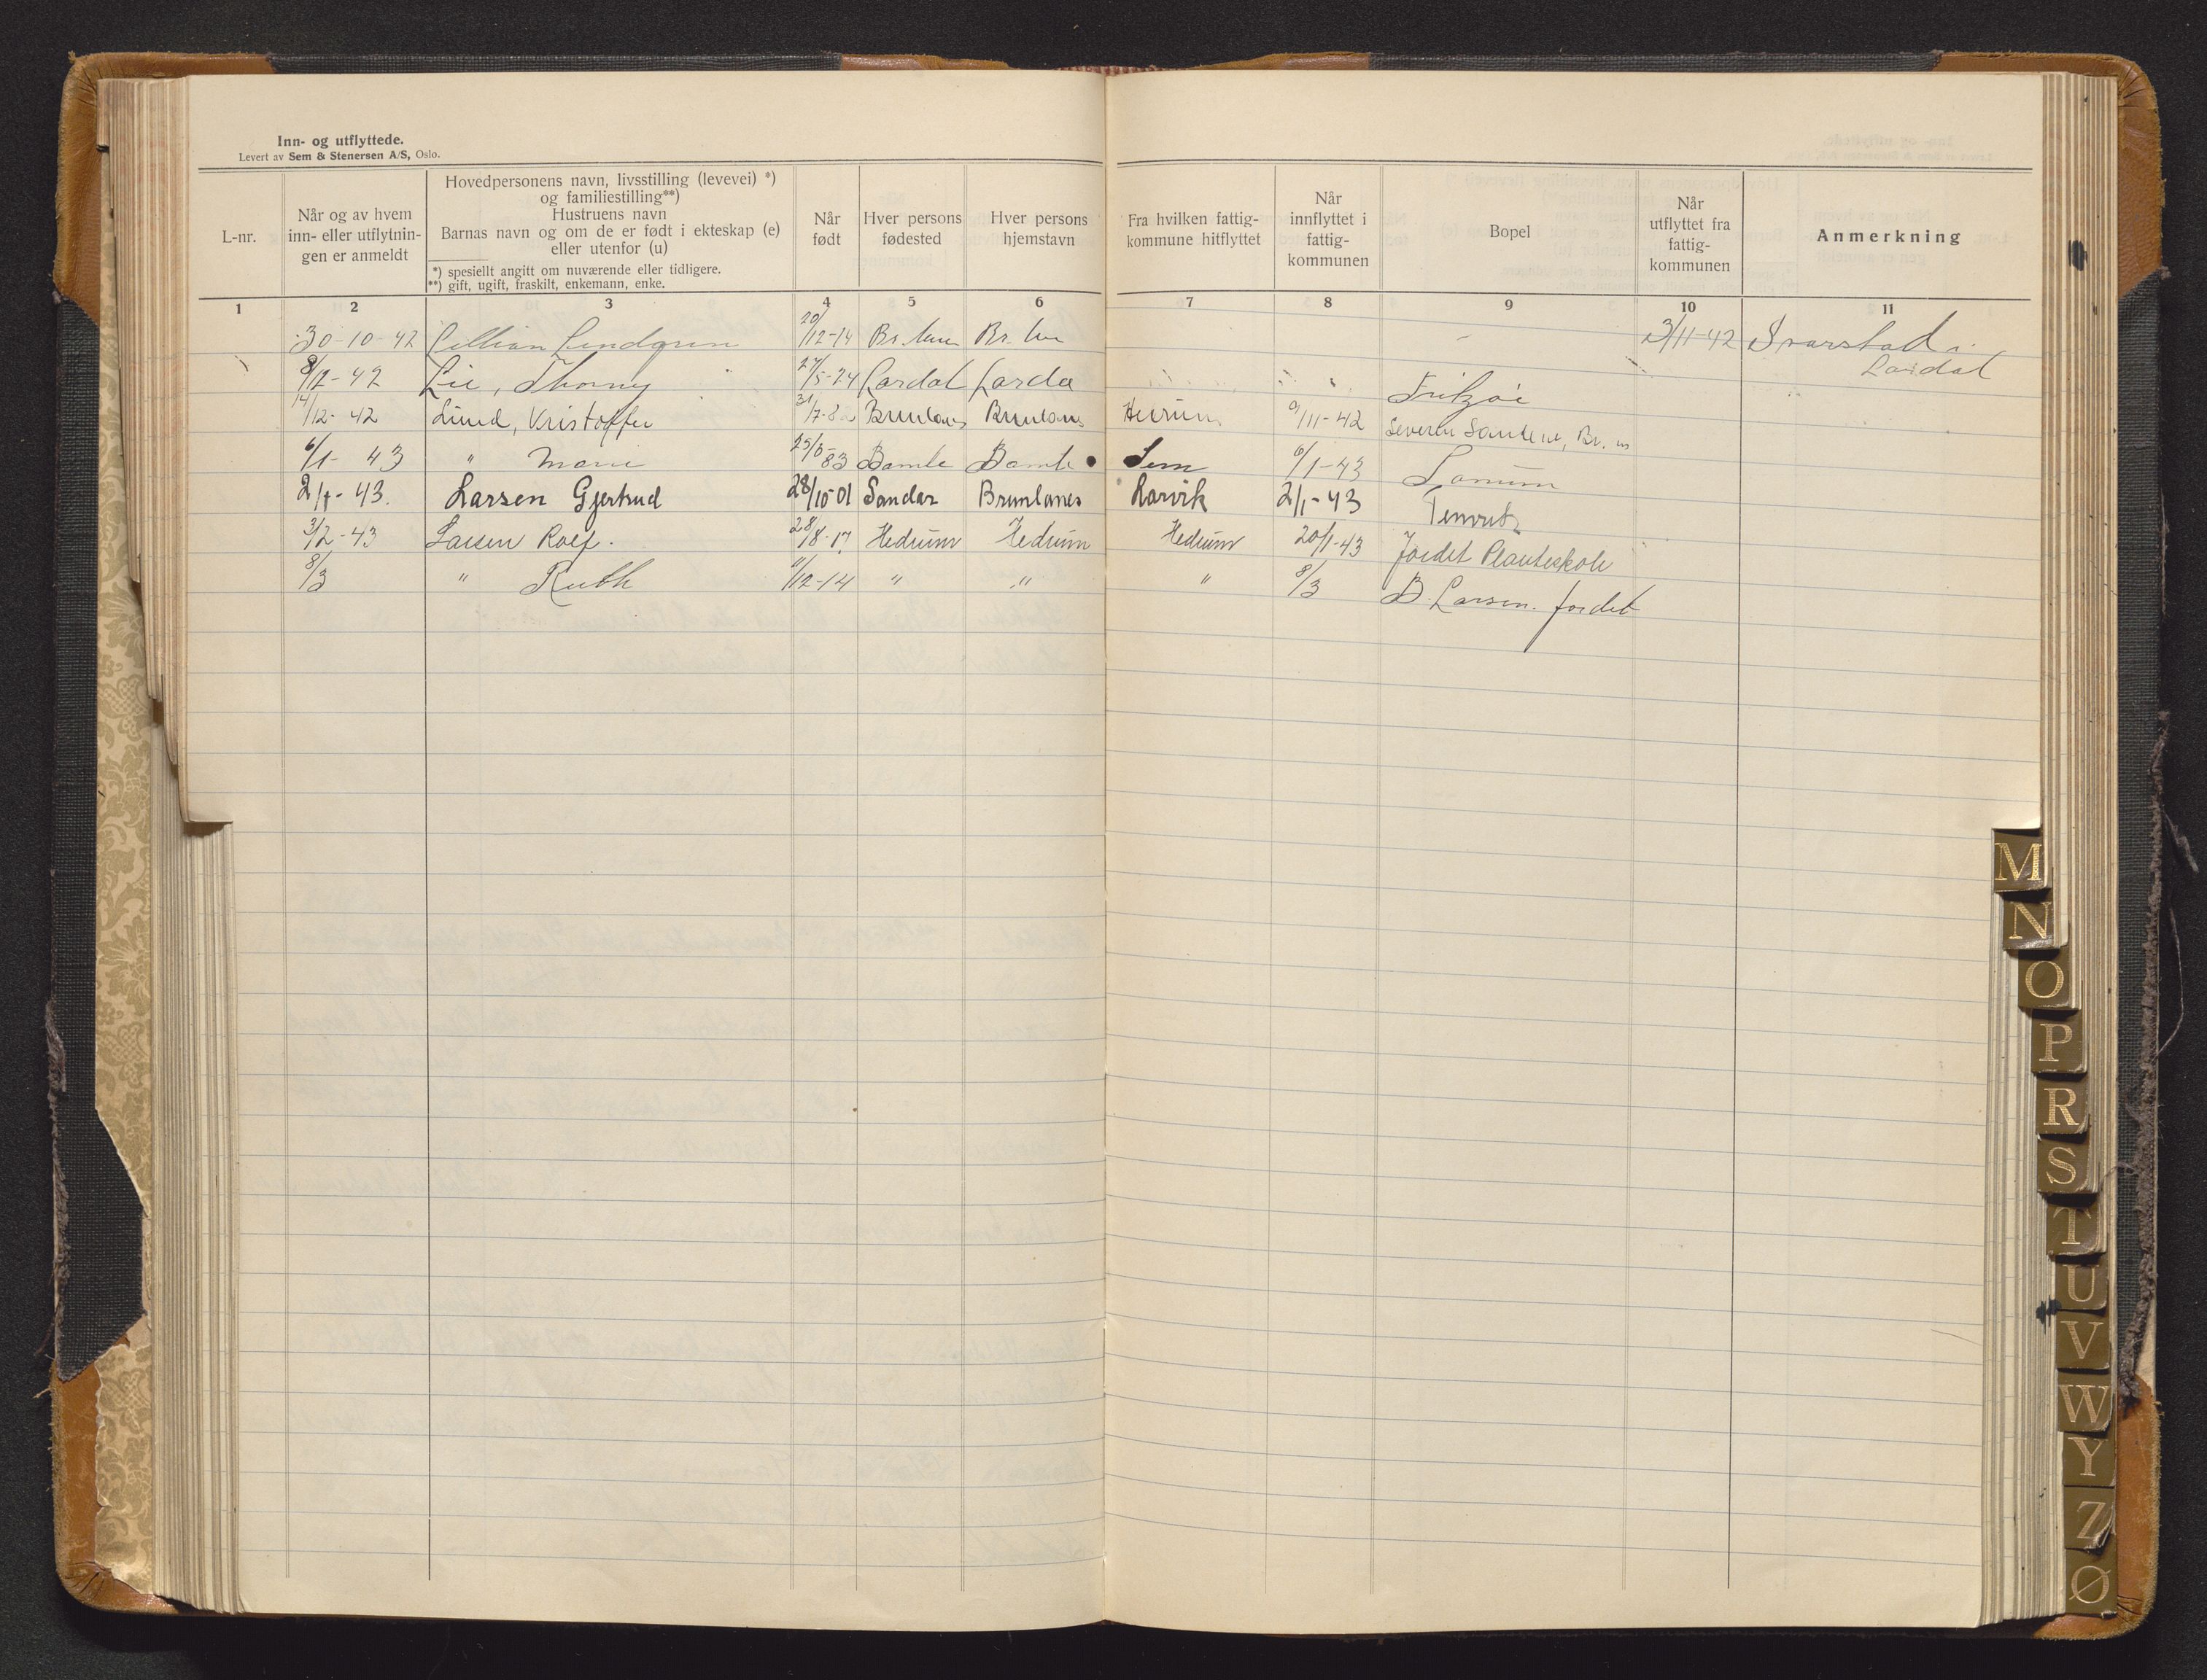 Inn- og utflyttede.
Levert av Sem & Stenersen A/S, Oslo.
L-nr.
Når og av hvem
inn- eller utflytnin-
gen er anmeldt
Hovedpersonens navn, livsstilling (levevei) *)
og familiestilling**)
Hustruens navn
Barnas navn og om de er født i ekteskap (e)
eller utenfor (u)
*) spesiellt angitt om nuværende eller tidligere.
**) gift, ugift, fraskilt, enkemann, enke.
Når
født
Hver persons
fødested
Hver persons
hjemstavn
Fra hvilken fattig-
kommune hitflyttet
Når
innflyttet i
fattig-
kommunen
Bopel
Når
utflyttet fra
fattig-
kommunen
Anmerkning
1 2 3 4 5 6 7 8 9 10 11
30-10-42 Lillian Lindgren 20/12-14 Br. lun Br. lun 3/11-42 Svarstad i
Lardal
8/12-42 Lie, Thorny 27/5-24 Lardal Lardal Fritzøe
14/12-42 Lund, Kristoffer 31/7-8 Brunlanes Brunlanes Hedrum 9/11-42 Severin Br.
6/1-43 " Marie 25/6-83 Bamle Bamle Sem 6/1-43
2/1-43. Larsen Gjertrud 28/10-01 Sandar Brunlanes Larvik 2/1-43
3/2-43 Larsen Rolf. 28/8-17. Hedrum Hedrum Hedrum 20/1-43 Jordet Planteskole
8/3 " Ruth /12-14 " " " 8/3 B. Larsen. Jordet
M
N
O
P
R
S
T
U
V
W
Y
Z
Ø